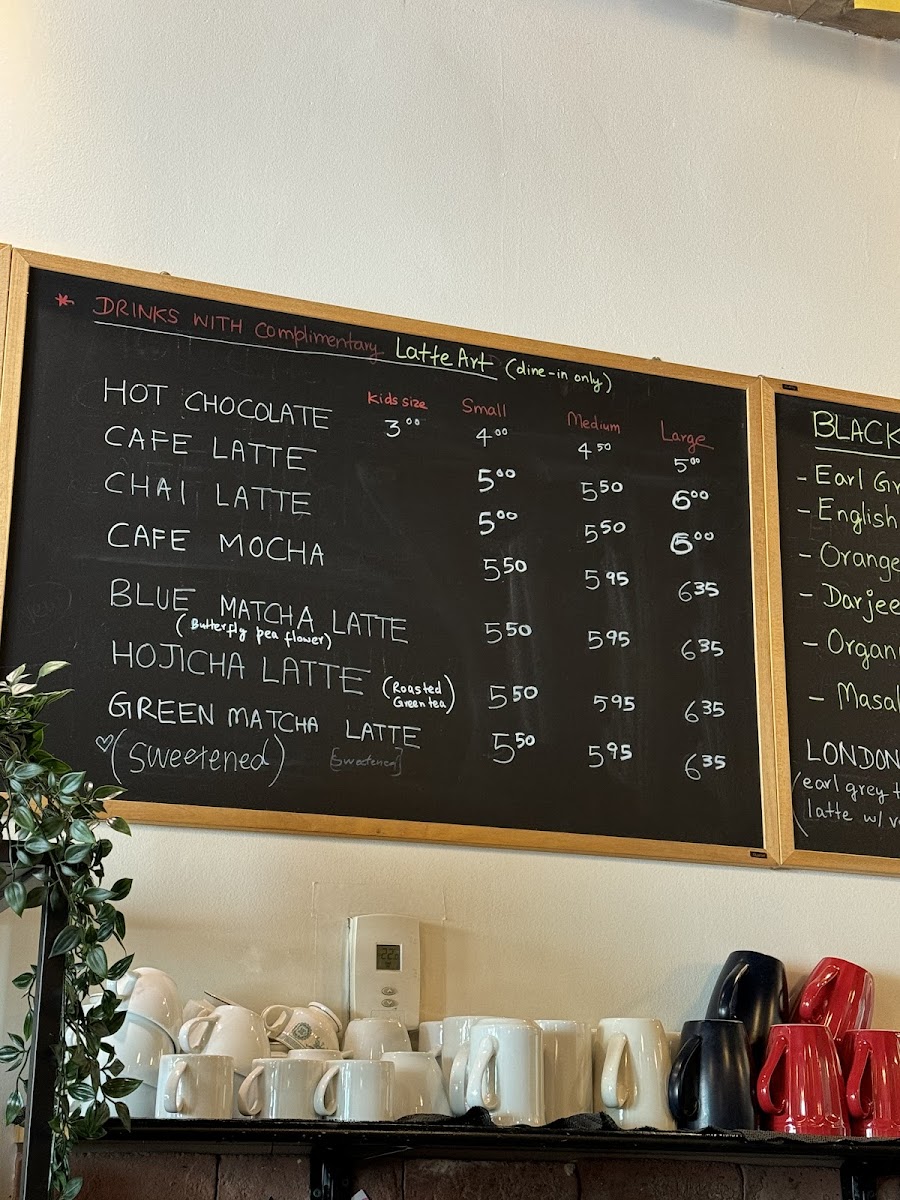 * DRINKS WITH Complimentary Latte Art (dine-in only)
Kids size Small Medium Large
HOT CHOCOLATE 3⁰⁰ 4⁰⁰ 4⁵⁰ 5⁰⁰
CAFE LATTE 5⁰⁰ 5⁵⁰ 6⁰⁰
CHAI LATTE 5⁰⁰ 5⁵⁰ 6⁰⁰
CAFE MOCHA 5⁵⁰ 5⁹⁵ 6³⁵
BLUE MATCHA LATTE 5⁵⁰ 5⁹⁵ 6³⁵
(Butterfly pea flower)
HOJICHA LATTE (Roasted Green tea) 5⁵⁰ 5⁹⁵ 6³⁵
GREEN MATCHA LATTE 5⁵⁰ 5⁹⁵ 6³⁵
♡(Sweetened) [Sweetened]
BLACK
- Earl Gr
- English
- Orange
- Darjee
- Organi
- Masal
LONDON
(earl grey t
latte w/ v